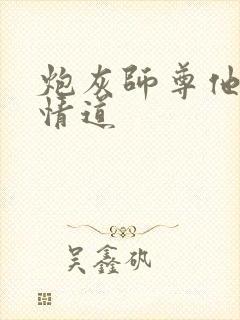 炮灰师尊他
情道
吴鑫矾